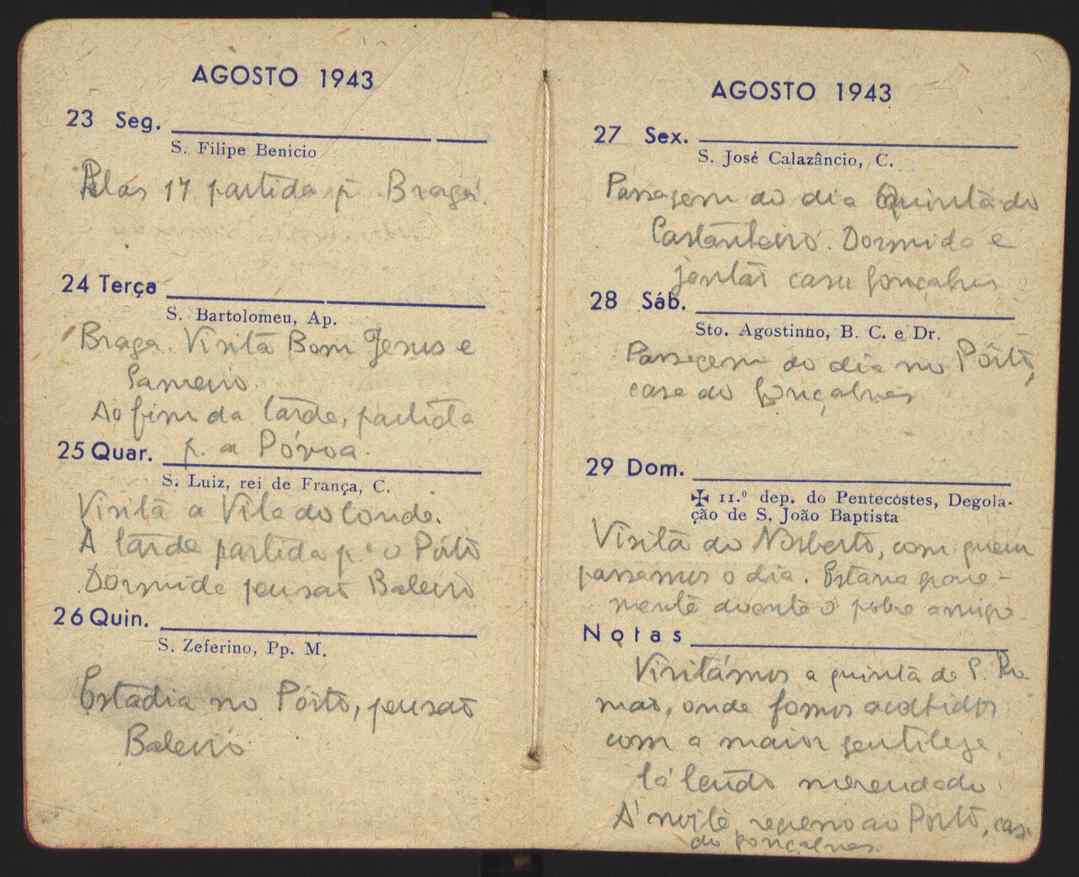 AGOSTO 1943
23 Seg.
S. Filipe Benicio
Pelas 17 partida p. Braga.
24 Terça
S. Bartolomeu, Ap.
Braga. Visita Bom Jesus e
Sameiro.
Ao fim da tarde, partida
p. a Póvoa.
25 Quar.
S. Luiz, rei de França, C.
Visita a Vila do Conde.
A tarde partida p. o Pôrto
Dormida pensão Baleiro
26 Quin.
S. Zeferino, Pp. M.
Estadia no Pôrto, pensão
Baleiro
AGOSTO 1943
27 Sex.
S. José Calazâncio, C.
Passagem do dia Quinta do
Castanheiro. Dormida e
jantar casa Gonçalves
28 Sáb.
Sto. Agostinho, B. C. e Dr.
Passagem do dia no Pôrto,
casa do Gonçalves
29 Dom.
✠ 11.º dep. do Pentecostes, Degola-
ção de S. João Baptista
Visita do Norberto, com quem
passamos o dia. Estava grave-
mente doente o pobre amigo
Notas
Visitámos a quinta de S. Ro-
mão, onde fomos acolhidos
com a maior gentileza,
lá tendo merendado.
Á noite regresso ao Porto, casa
do Gonçalves.